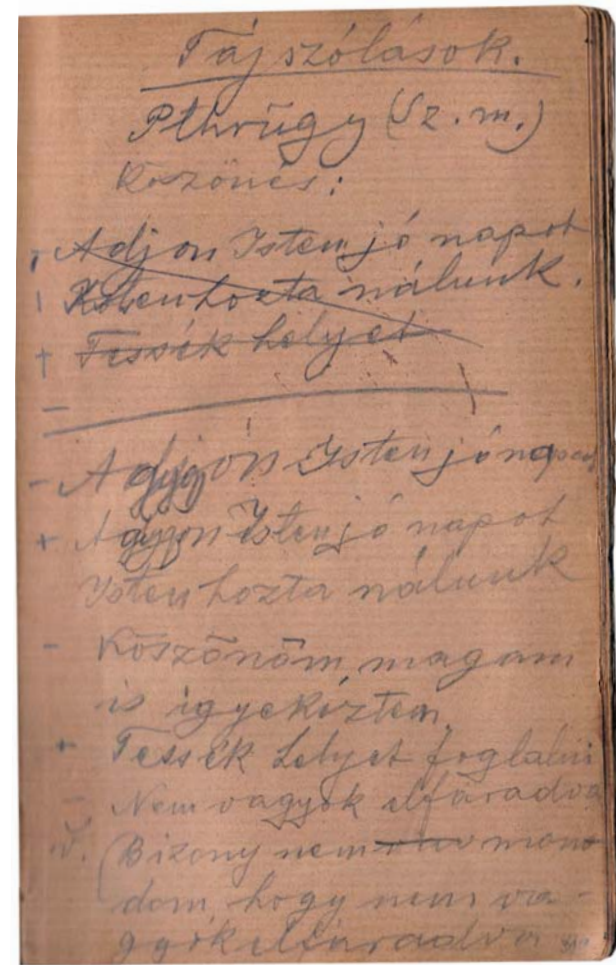 Tájszólások.
Pthrügy (Sz. m.)
Köszönés:
Adjon Isten jó napot
Isten hozta nálunk.
Tessék helyet
- Agygyon Isten jó napot
+ Agygyon Isten jó napot
Isten hozta nálunk
- Köszönöm, magam
is igyekőztem.
+ Tessék helyet foglalni
- Nem vagyok elfáradva
V. (Bizony nem mon
dom, hogy nem va-
gyok elfáradva